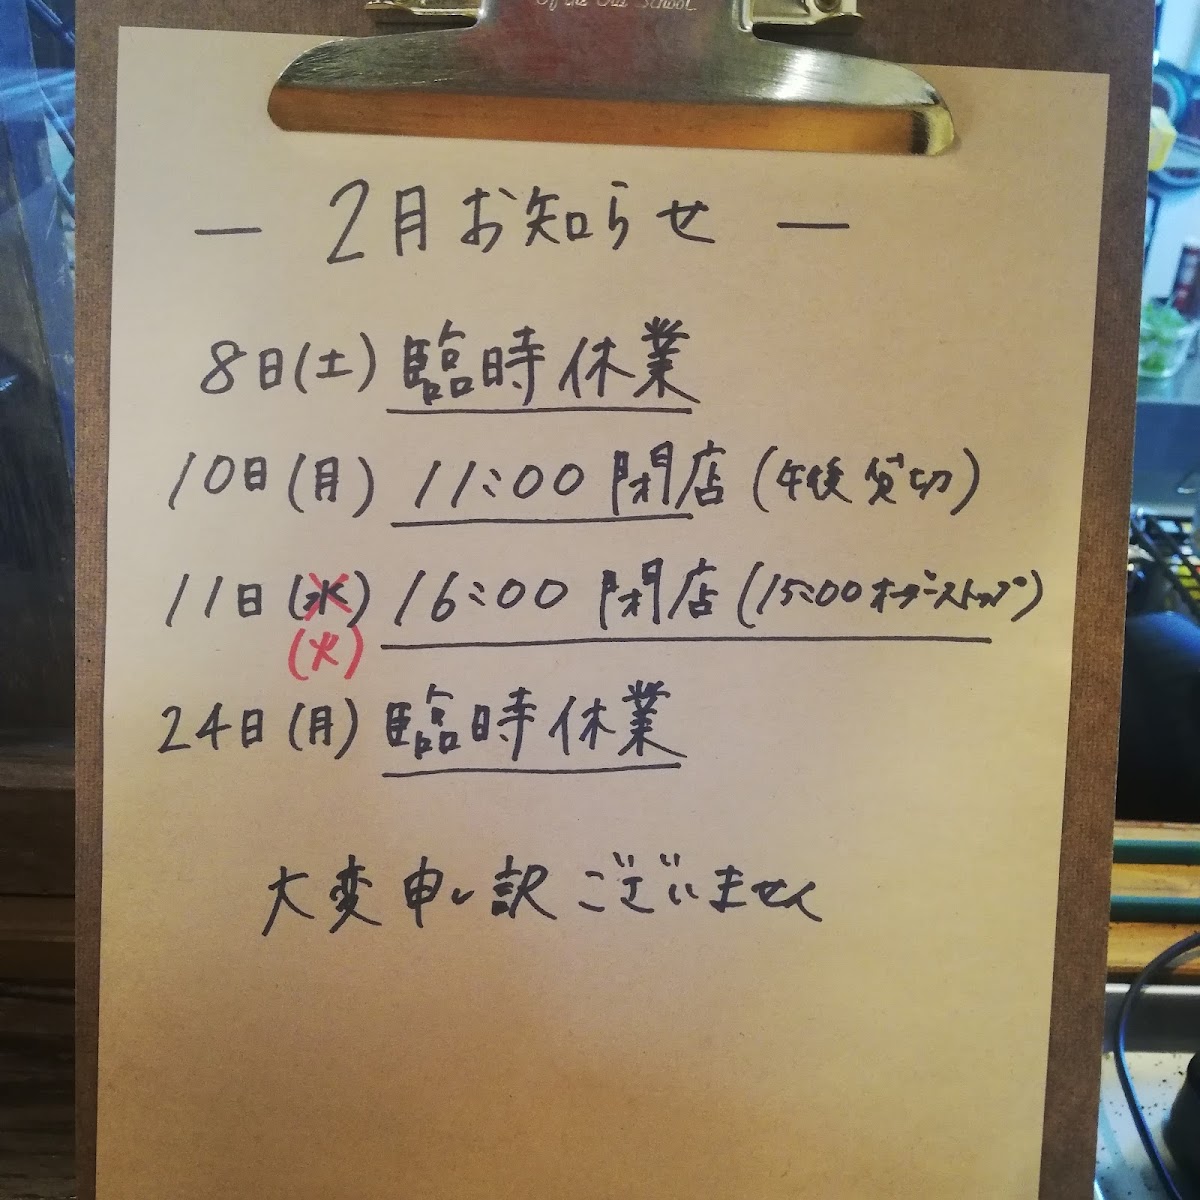 Off the Old School
— 2月お知らせ —
8日(土) 臨時休業
10日(月) 11:00 閉店 (午後貸切)
11日(水) 16:00 閉店 (15:00オーダーストップ)
(火)
24日(月) 臨時休業
大変申し訳ございません